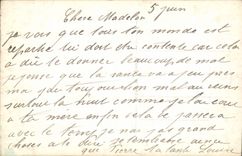 5 juin
Chere Madelon
je vois que tout ton monde est
reparti lui doit etre contente car cela
a du te donner beaucoup de mal
je pense que la sante va a peu pres
ma toujours mal au reins
surtout la nuit comme je l'ai
a ta mere enfin cela se passera
avec le temps je n'ai pas grand
choses a te dire je t'embrasse ainsi
que Pierre ta tante Louise